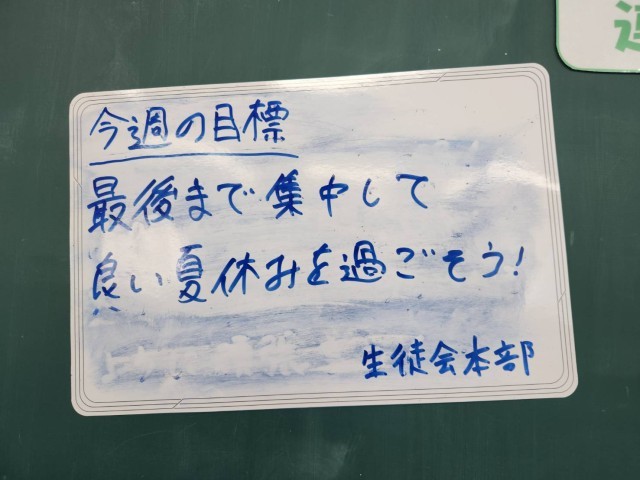 今週の目標
最後まで集中して
良い夏休みを過ごそう!
生徒会本部